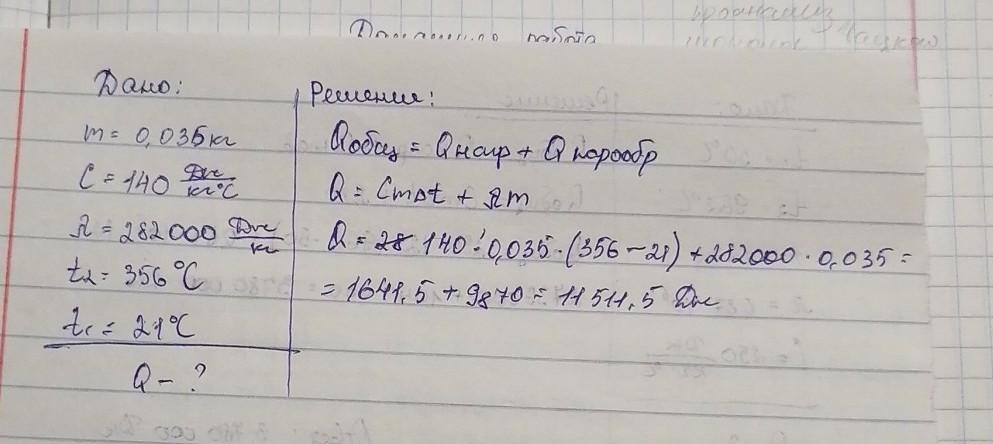 работа
Дано:
m = 0,035 кг
C = 140 Дж/кг°C
λ = 282000 Дж/кг
t₂ = 356 °C
t₁ = 21 °C
Q – ?
Решение:
Qобщ = Qнагр + Qпарообр
Q = CmΔt + λm
Q = 140 · 0,035 · (356 – 21) + 282000 · 0,035 =
= 1641,5 + 9870 = 11511,5 Дж